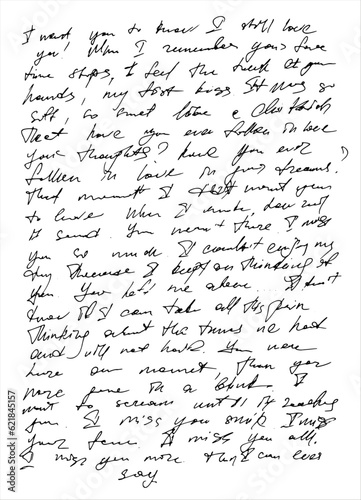 I want you to know I still love
you! When I remember your face
time stops, I feel the touch of your
hands, my first kiss. It was so
soft, so sweet like a
that have you ever fallen in love
your thoughts? have you ever
fallen in love in your dreams?
that moment I want you
to leave When I
it send. You weren't there I miss
you so much. I couldn't enjoy my
day because I keep on thinking of
you. You left me alone. I don't
know if I can take all this pain
thinking about the times we had
and will not have. You were
here one moment, then you
were gone in a blink. I
want to scream until it reaches
you. I miss you smile I miss
your face I miss you all.
I miss you more than I can ever
say
Adobe Stock | #621845157